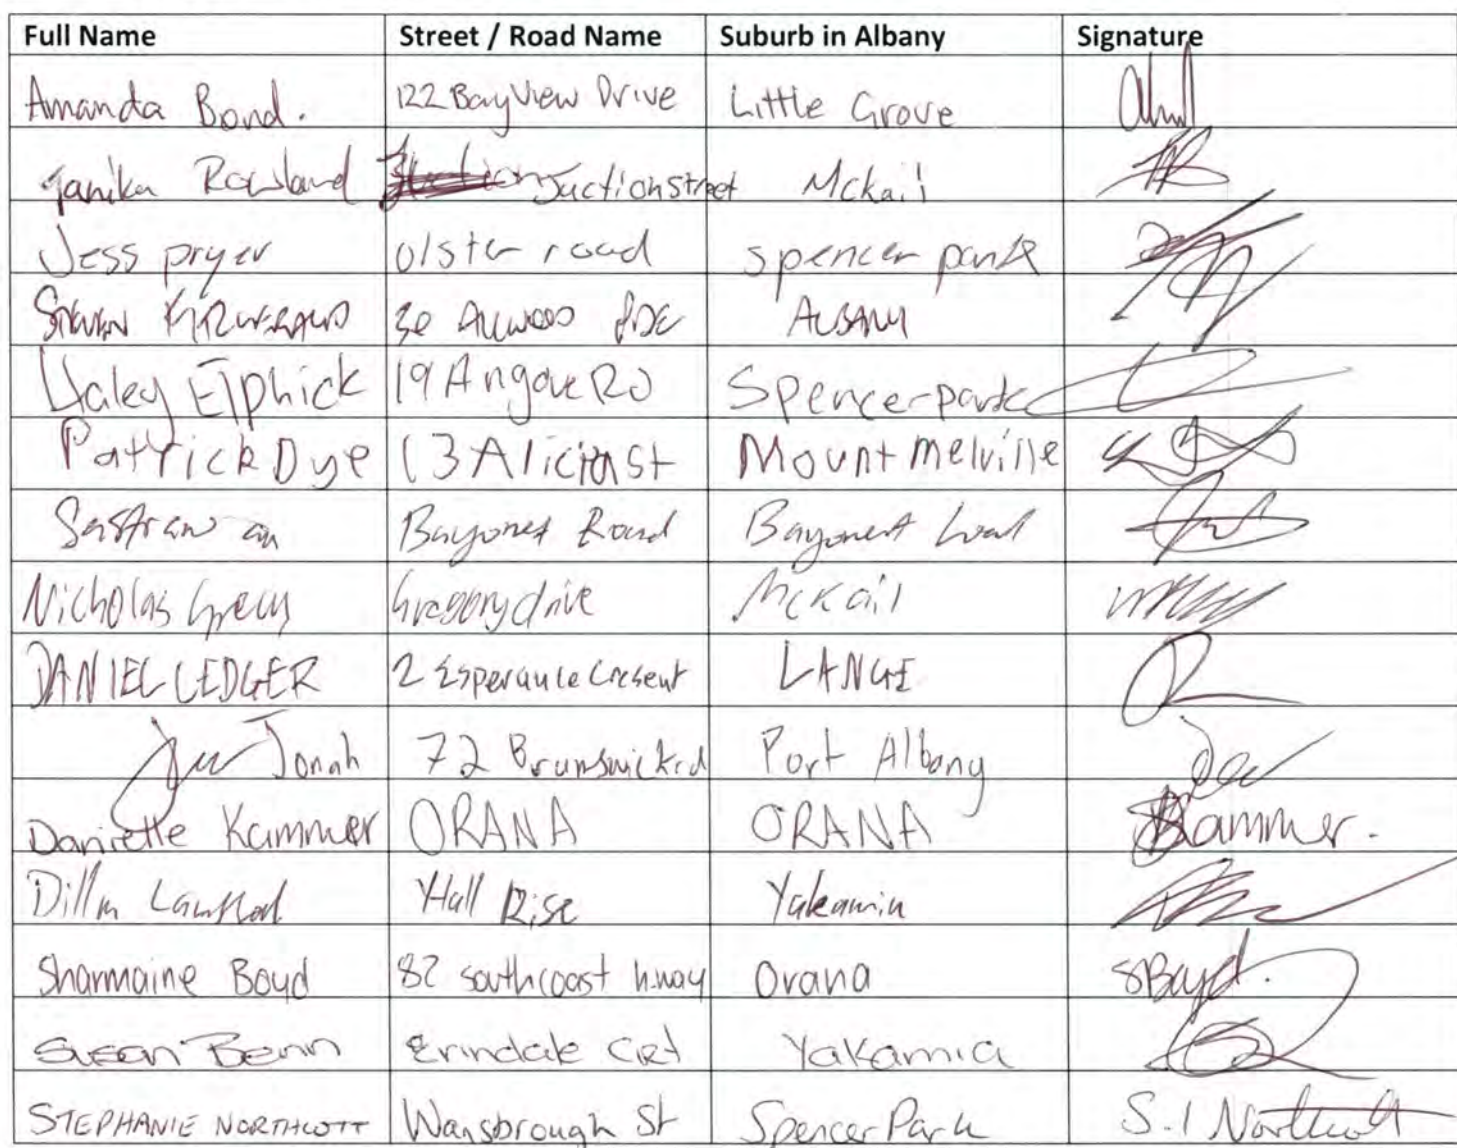 Full Name Street / Road Name Suburb in Albany Signature
Amanda Bond. 122 Bayview Drive Little Grove
Janika Rowland Juctionstreet Mckail
Jess pryer Ulster road spencer park
30 ALBANY
Haley Elphick 19 Angove RD Spencerpark
Patrick Dye 13 Alicia St Mount Melville
Bayonet Road Bayonet
Nicholas Gregorydrive McKail
DANIEL LEDGER 2 Esperance Cresent LANGE
Jonah 72 Brunswick rd Port Albany
Danielle Kammer ORANA ORANA Kammer.
Hall Rise Yakamia
Sharmaine Boyd 82 southcoast h.way Orana SBoyd.
Susan Benn Erindale Crt Yakamia
STEPHANIE NORTHCOTT Wansbrough St Spencer Park S.I Northcott